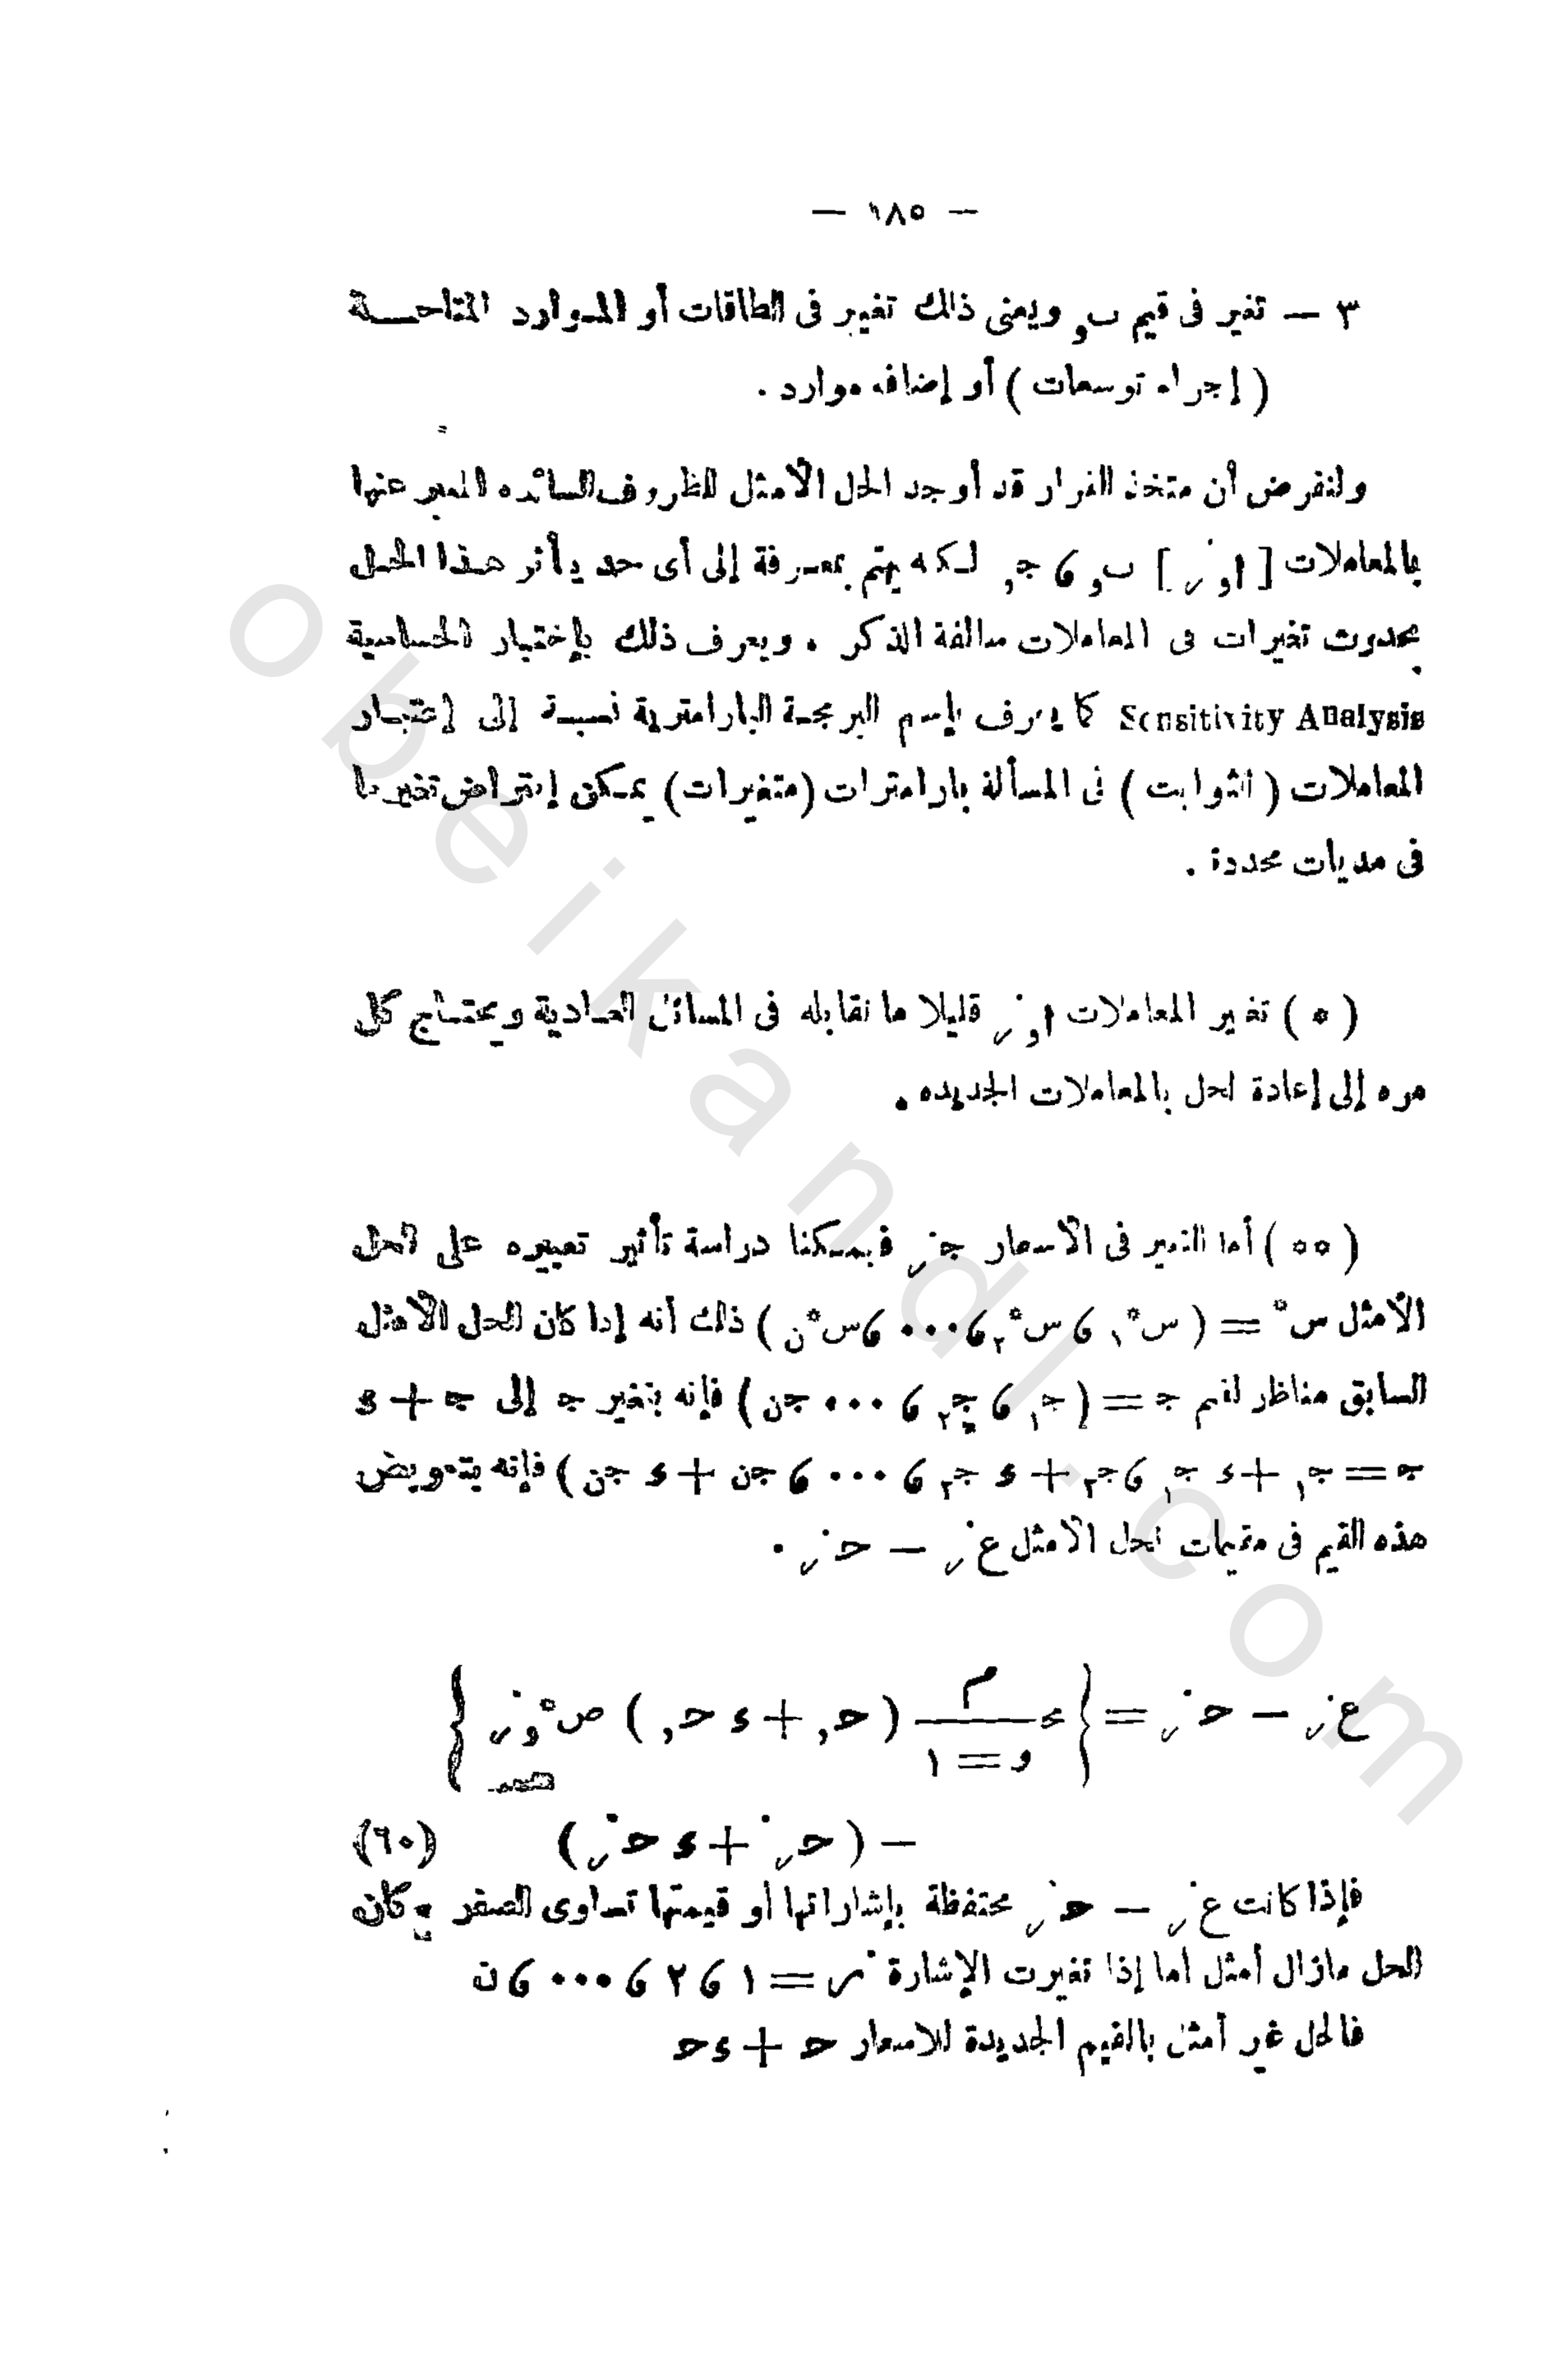 — ١٨٥ —
٣ — تغير فى قيم بو ويعنى ذلك تغيير فى الطاقات أو المـوارد المتاحـــة
( إجراء توسعات ) أو إضافه موارد .
ولنفرض أن متخذ القرار قد أوجد الحل الأمثل للظروف السائده المعبر عنها
بالمعاملات [ اور ] بو ، جر لـكنه يهتم بمعـرفة إلى أى حد يأثر هـذا الحـل
بحدوث تغيرات فى المعاملات سالفة الذكر . ويعرف ذلك بإختبار الحساسية
Sensitivity Analysis كما يعرف بإسم البرمجـة البارامترية نسبـة إلى إعتبـار
المعاملات ( الثوابت ) فى المسألة بارامترات (متغيرات) يمـكن إفتراض تغيرها
فى مديات محددة .
( ٥ ) تغير المعاملات اور قليلا ما نقابله فى المسائل العـادية ويحتـاج كل
مره إلى إعادة لحل بالمعاملات الجديده .
( ٥٥ ) أما التغير فى الأسعار جر فيمـكننا دراسة تأثير تغييره على الحل
الأمثل س° = ( س°١ ، س°٢ ، ٠٠٠ ، س°ن ) ذلك أنه إذا كان الحل الأمثل
السابق مناظر لقيم ج = ( ج١ ، ج٢ ، ٠٠٠ جن ) فإنه بتغير ج إلى ج + ء
ج = ج١ + ء ج١ ، ج٢ + ء ج٢ ، ٠٠٠ ، جن + ء جن ) فإنه بتعويض
هذه القيم فى متقيمات الحل الأمثل عر — حر .
عر — حر = { م / و = ١ ( حو + ء حو ) ص°ور }
— ( حر + ء حر ) (٦٠)
فإذا كانت عر — حر محتفظة بإشاراتها أو قيمتها تساوى الصفر كان
الحل مازال أمثل أما إذا تغيرت الإشارة ر = ١ ، ٢ ، ٠٠٠ ، ن
فالحل غير أمثل بالقيم الجديدة للاسعار ح + ءح
obeikandl.com